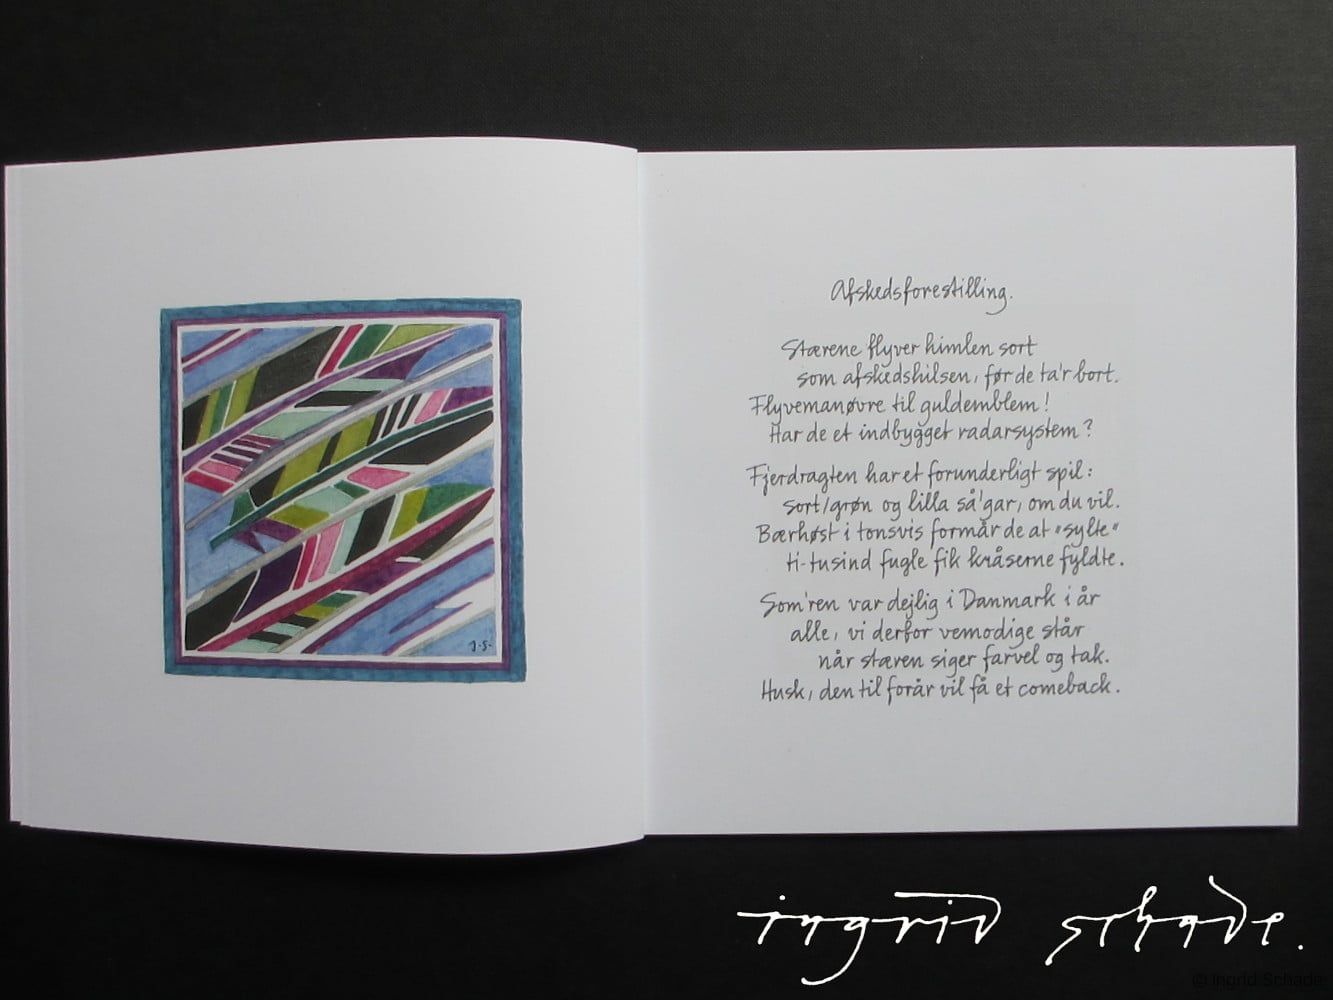 J.S.
Afskedsforestilling.
Stærene flyver himlen sort
som afskedshilsen, før de ta'r bort.
Flyvemanøvre til guldemblem!
Har de et indbygget radarsystem?
Fjerdragten har et forunderligt spil:
sort/grøn og lilla så'gar, om du vil.
Bærhøst i tonsvis formår de at "sylte"
ti-tusind fugle fik kråserne fyldte.
Som'ren var dejlig i Danmark i år
alle, vi derfor vemodige står
når stæren siger farvel og tak.
Husk, den til forår vil få et comeback.
ingrid schade.
© Ingrid Schade